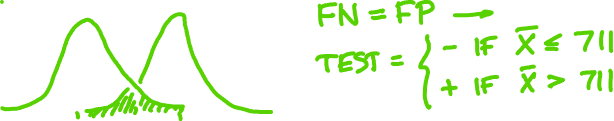 FN = FP →
TEST = { - IF X̄ ≤ 711
+ IF X̄ > 711